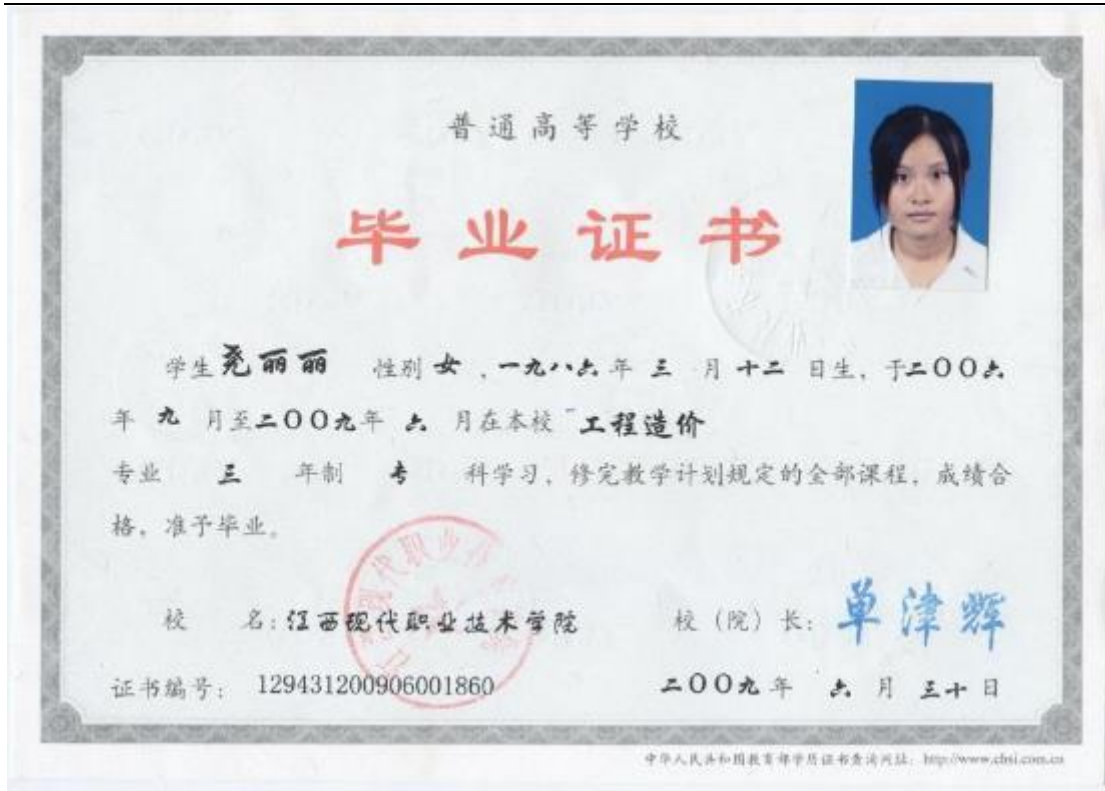 普通高等学校
毕业证书
学生尧丽丽 性别女，一九八六年三月十二日生，于二〇〇六
年九月至二〇〇九年六月在本校 工程造价
专业 三 年制 专 科学习，修完教学计划规定的全部课程，成绩合
格，准予毕业。
校 名：江西现代职业技术学院 校（院）长：单津辉
证书编号：129431200906001860 二〇〇九年六月三十日
中华人民共和国教育部学历证书查询网址：http://www.chsi.com.cn